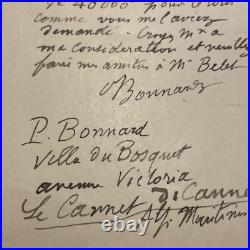 de 40000 pour
comme vous me l'aviez
demandé. Croyez Mr à
ma considération et veuillez
faire mes amitiés à Mr Belet
Bonnard
P. Bonnard
Villa du Bosquet
avenue Victoria
Le Cannet di Canne
Alp. Maritimes